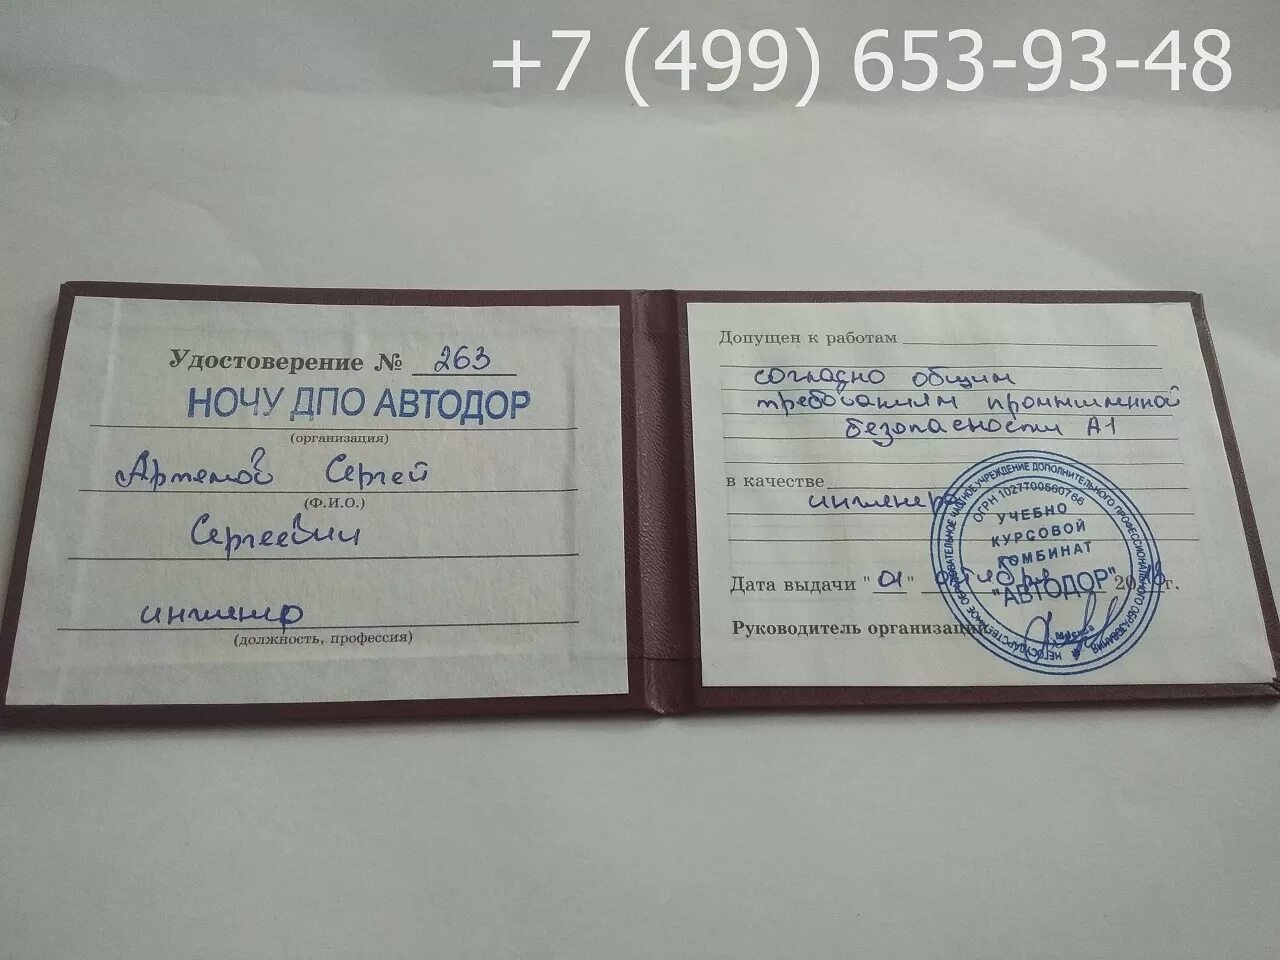 +7 (499) 653-93-48
Удостоверение № 263
НОЧУ ДПО АВТОДОР
(организация)
Артемов Сергей
(Ф.И.О.)
Сергеевич
инженер
(должность, профессия)
Допущен к работам
согладно общим
требованиям промышленной
безопасности А1
в качестве
инженера
Дата выдачи "01" октября 2018г.
Руководитель организации
НЕГОСУДАРСТВЕННОЕ ОБРАЗОВАТЕЛЬНОЕ ЧАСТНОЕ УЧРЕЖДЕНИЕ ДОПОЛНИТЕЛЬНОГО ПРОФЕССИОНАЛЬНОГО ОБРАЗОВАНИЯ
ОГРН 1027700560766
УЧЕБНО
КУРСОВОЙ
КОМБИНАТ
"АВТОДОР"
Москва